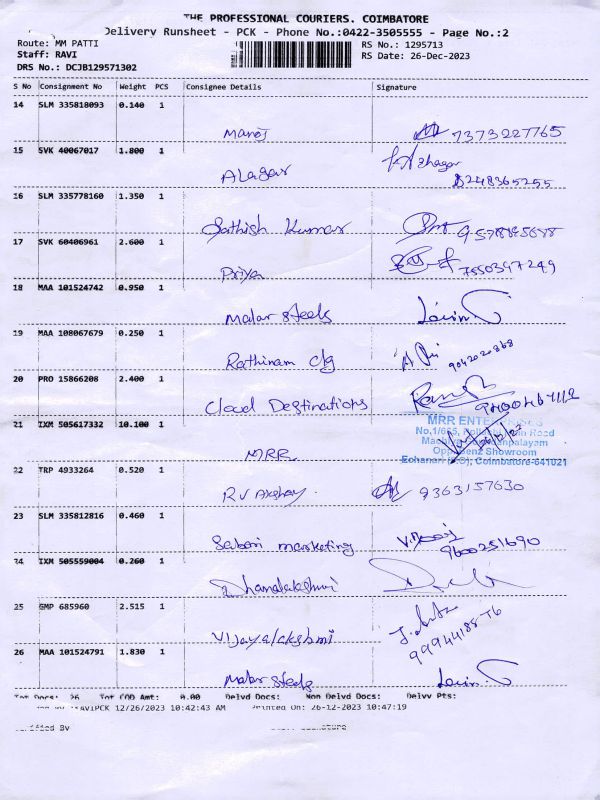 THE PROFESSIONAL COURIERS. COIMBATORE
Delivery Runsheet - PCK - Phone No.:0422-3505555 - Page No.:2
Route: MM PATTI RS No.: 1295713
Staff: RAVI RS Date: 26-Dec-2023
DRS No.: DCJB129571302
S No Consignment No Weight PCS Consignee Details Signature
14 SLM 335818093 0.140 1
Manoj 7373227765
15 SVK 40067017 1.800 1
Alagar
16 SLM 335778160 1.350 1
Sathish Kumar
17 SVK 60406961 2.600 1
Priya 7550397249
18 MAA 101524742 0.950 1
Malar steels
19 MAA 108067679 0.250 1
Rathinam clg 9042020868
20 PRO 15866208 2.400 1
Cloud Destinations
21 IXM 505617332 10.100 1
MRR
MRR
No,1/
Road
Showroom
Coimbatore-641021
22 TRP 4933264 0.520 1
RV Akshay 9363157630
23 SLM 335812816 0.460 1
Sabari marketing 9600251690
24 IXM 505559004 0.260 1
Dhanalakshmi
25 GMP 685960 2.515 1
Vijayalakshmi
26 MAA 101524791 1.830 1
Malar steels
Tot Docs: 26 Tot COD Amt: 0.00 Delvd Docs: Non Delvd Docs: Delvy Pts:
12/26/2023 10:42:43 AM Printed On: 26-12-2023 10:47:19
Verified By